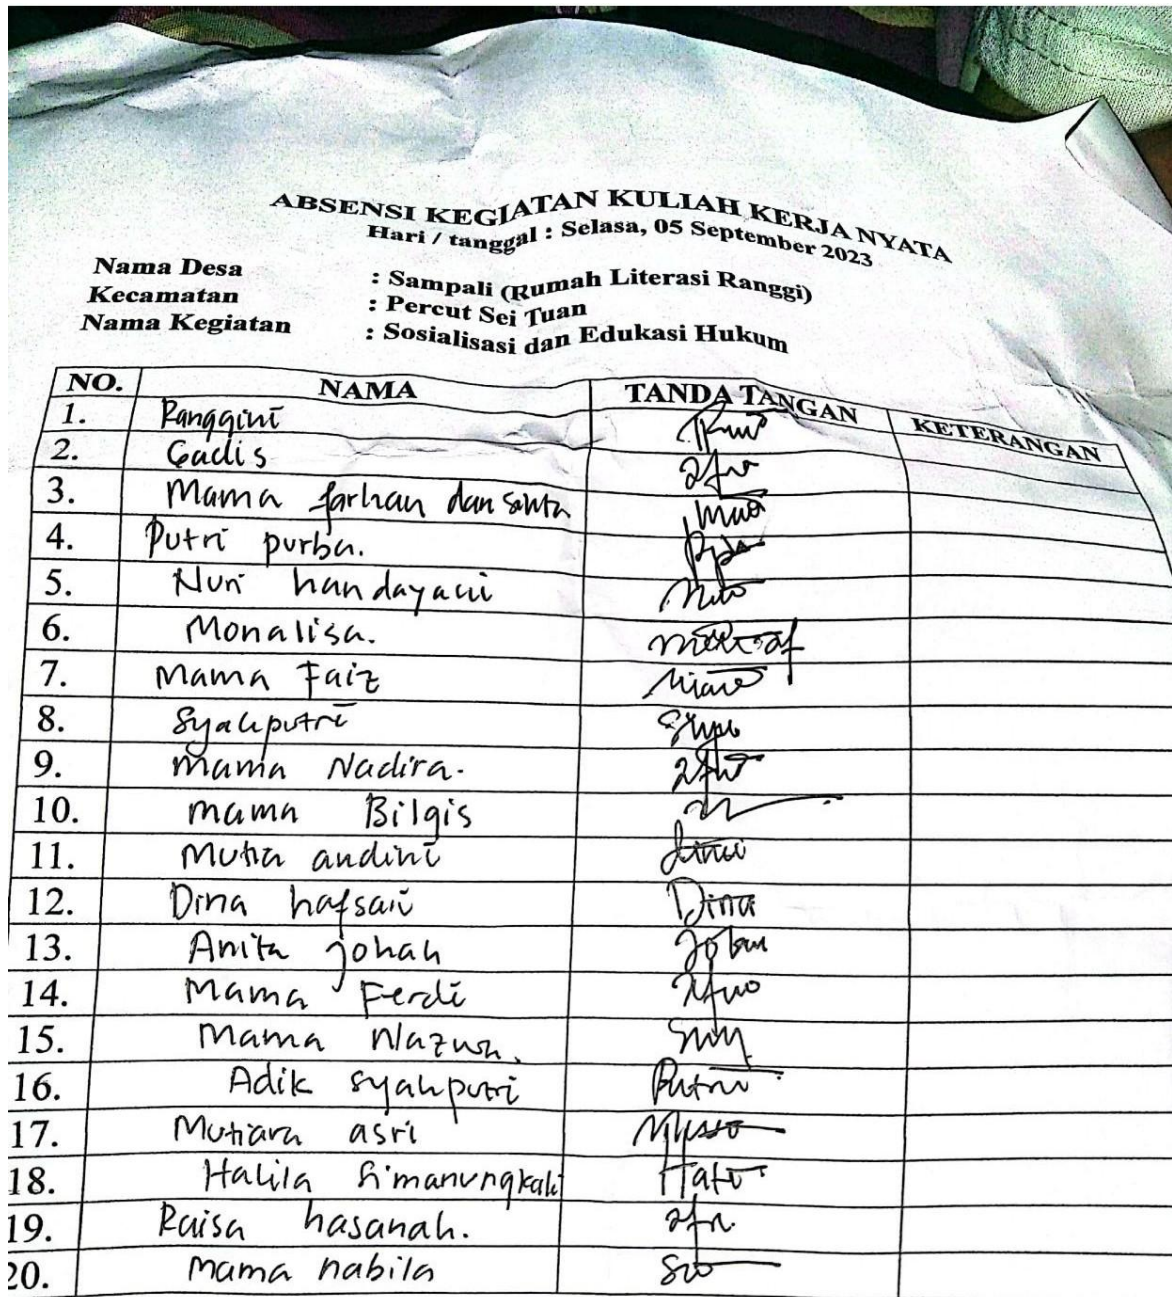 ABSENSI KEGIATAN KULIAH KERJA NYATA
Hari / tanggal : Selasa, 05 September 2023
Nama Desa : Sampali (Rumah Literasi Ranggi)
Kecamatan : Percut Sei Tuan
Nama Kegiatan : Sosialisasi dan Edukasi Hukum
NO. NAMA TANDA TANGAN KETERANGAN
1. Ranggini
2. Gadis
3. Mama farhan dan
4. Putri purba.
5. Nuri handayani
6. Monalisa.
7. Mama Faiz
8. Syahputri
9. Mama Nadira.
10. mama Bilqis
11. Mutia andini
12. Dina hafsari Dina
13. Anita johah
14. Mama Ferdi
15. Mama Nazwa.
16. Adik syahputri Putri
17. Mutiara asri
18. Halila Simanungkalit
19. Raisa hasanah.
20. mama nabila